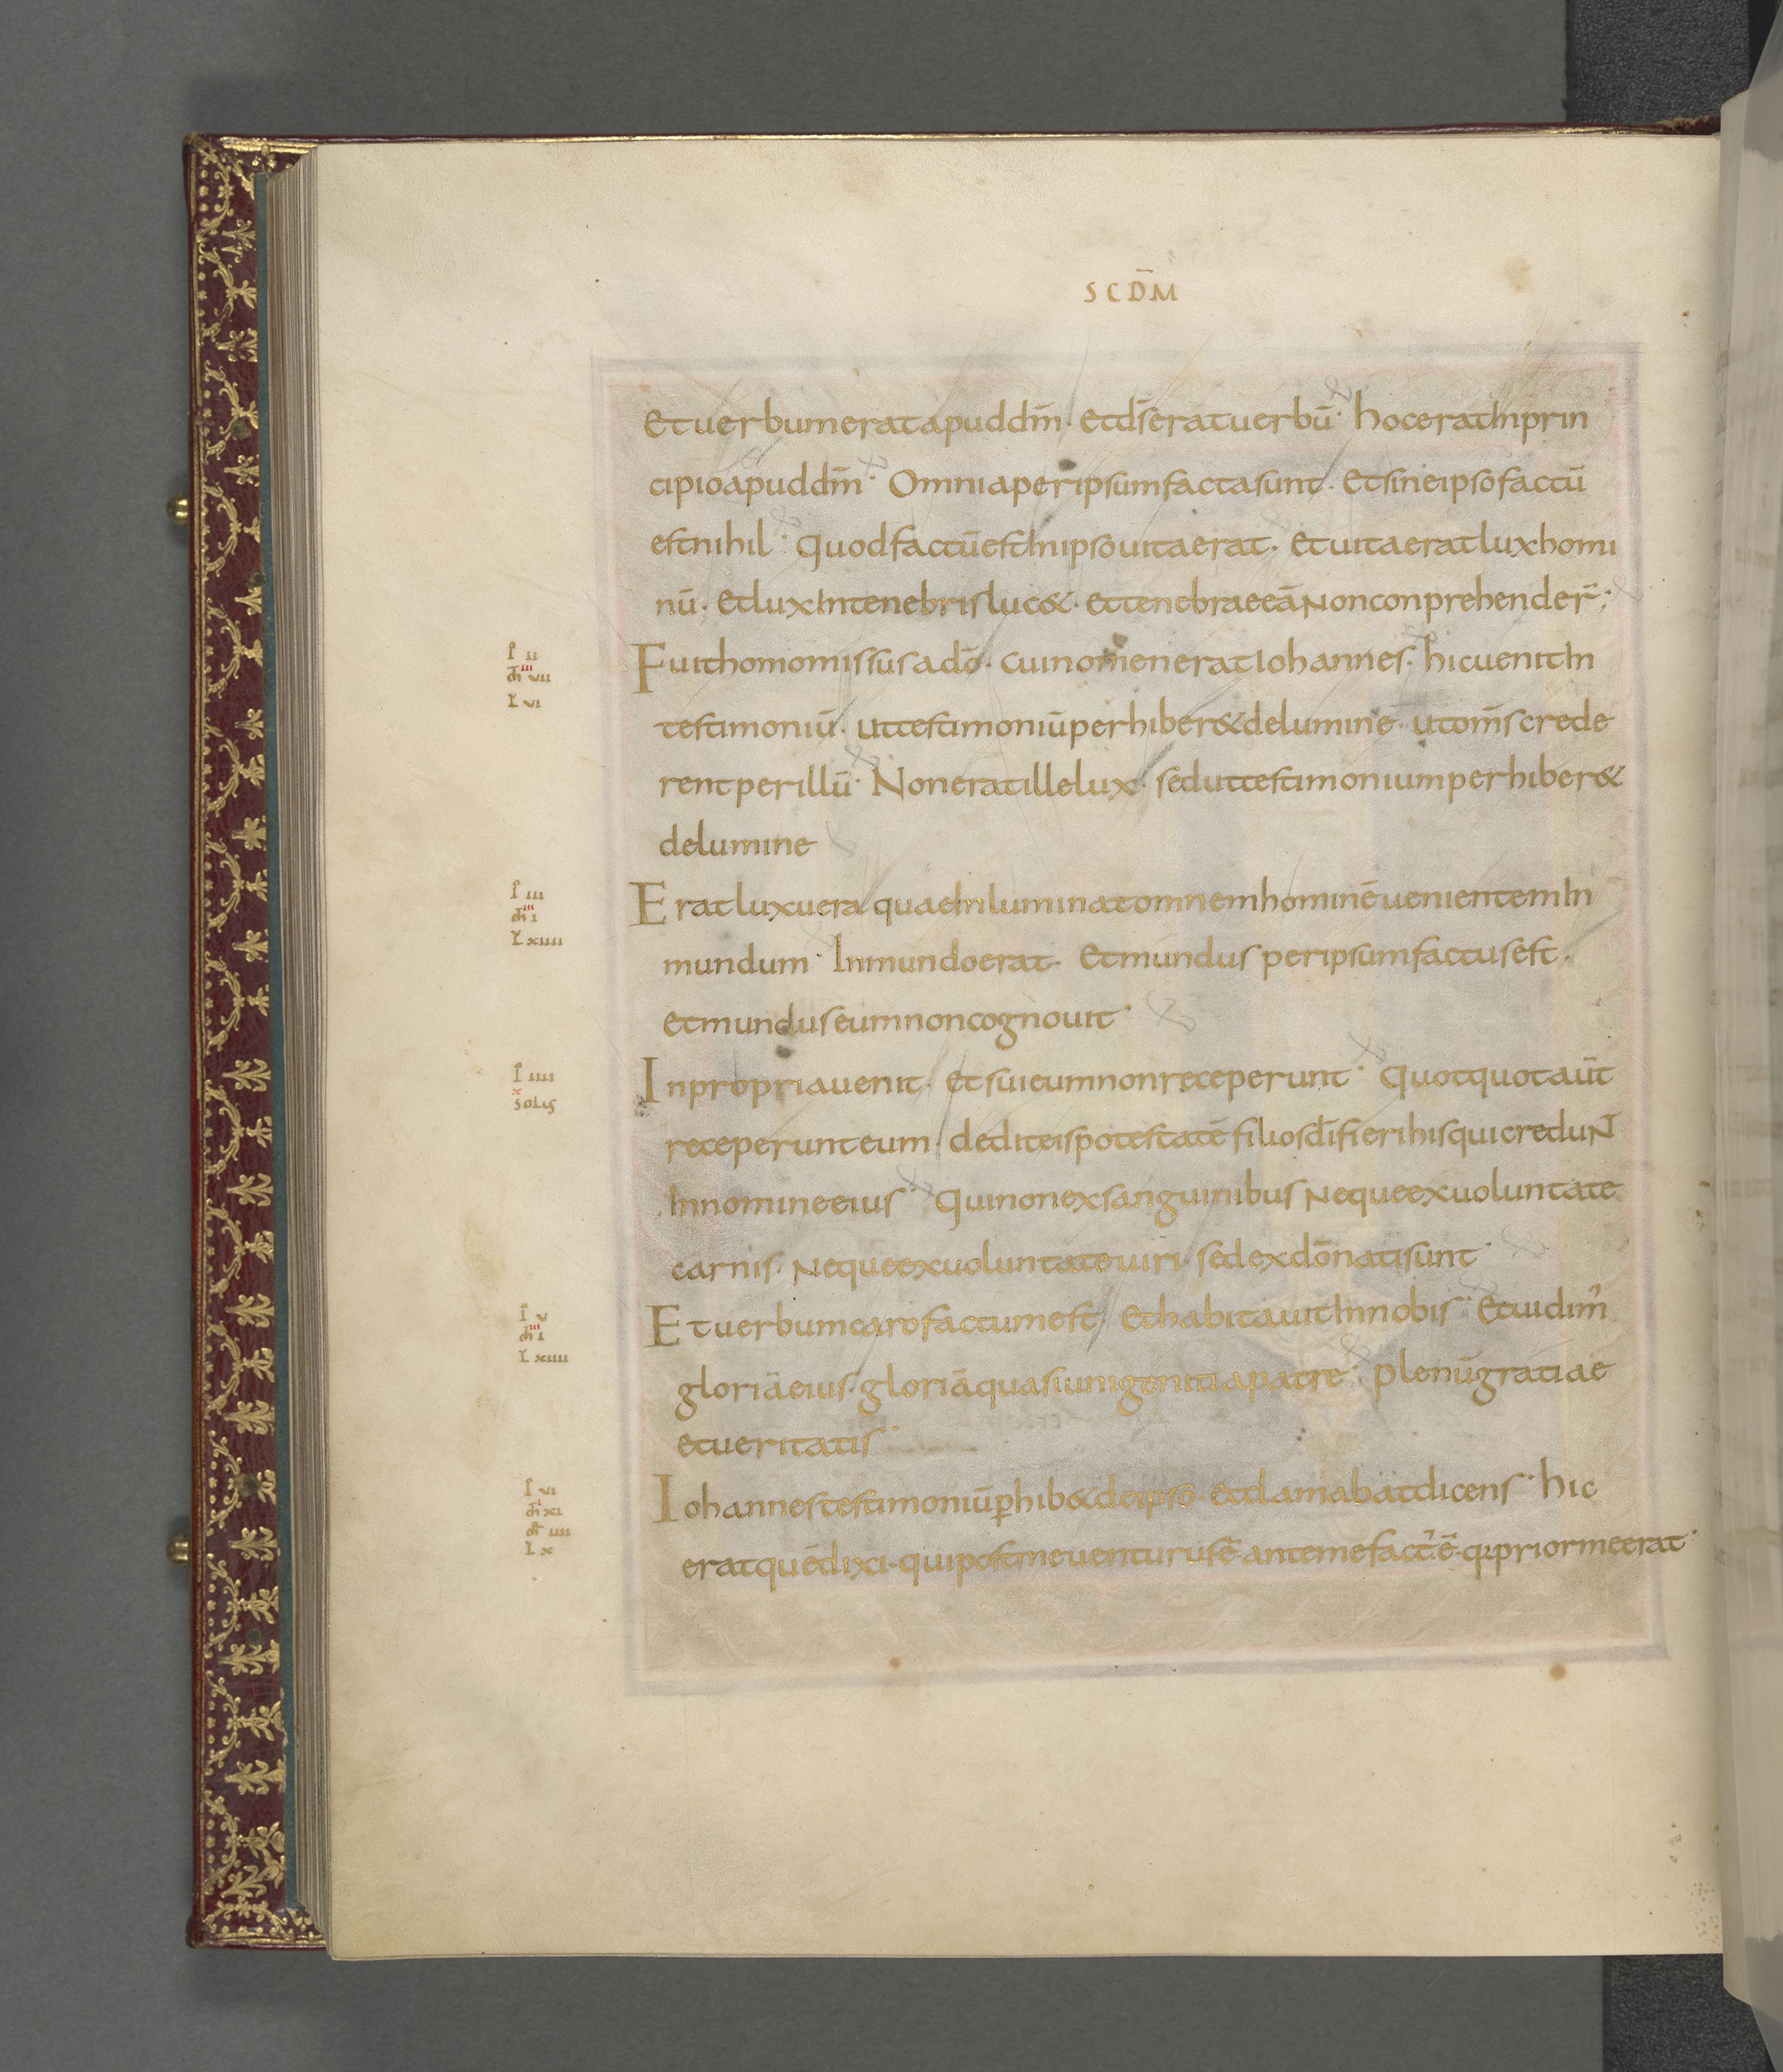 SCD̄M
et uerbum erat apud dm̄. et ds̄ erat uerbū. hoc erat In prin
cipio apud dm̄. Omnia per ipsum facta sunt. et sine ipso factū
est nihil. quod factū est In ipso uita erat. et uita erat lux homi
nū. et lux In tenebris luc&. et tenebrae eā Non conprehender̄;
Fuit homo missus a dō. cui nomen erat Iohannes. hic uenit In
testimoniū. ut testimoniū perhiber& de lumine. ut om̄s crede
rent per illū. Non erat ille lux. sed ut testimonium perhiber&
de lumine
Erat lux uera quae Inluminat omnem hominē uenientem In
mundum. In mundo erat. et mundus per ipsum factus est.
et mundus eum non cognouit.
In propria uenit. et sui eum non receperunt. quotquot aūt
receperunt eum. dedit eis potestatē filios dī fieri his qui creduNT
In nomine eius. qui non ex sanguinibus Neque ex uoluntate
carnis. Neque ex uoluntate uiri. sed ex dō nati sunt.
Et uerbum caro factum est. et habitauit In nobis. et uidim'
gloriā eius. gloriā quasi unigeniti a patre. plenū gratiae
et ueritatis.
Iohannes testimoniū ꝑhib& de ipso. et clamabat dicens. hic
erat quē dixi. qui post me uenturus ē ante me fact' ē. qꝛ prior me erat.
I̊ II
III
m̄ VII
L VI
I̊ III
III
m̄ I
L XIIII
I̊ IIII
x
solus
I̊ V
III
m̄ I
L XIIII
I̊ VI
I
m̄ XI
mr̄ IIII
L X